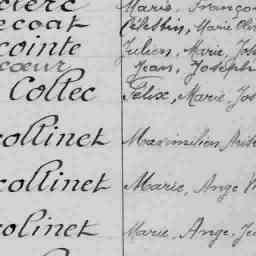 clerc Marie, Françoi
ecoat Célestin, Marie
cointe Julien, Marie, Jos
cœur Jean, Joseph
Collec Félix, Marie, Jos
collinet Maximilien, Arist
collinet Marie, Ange
colinet Marie, Ange, Je